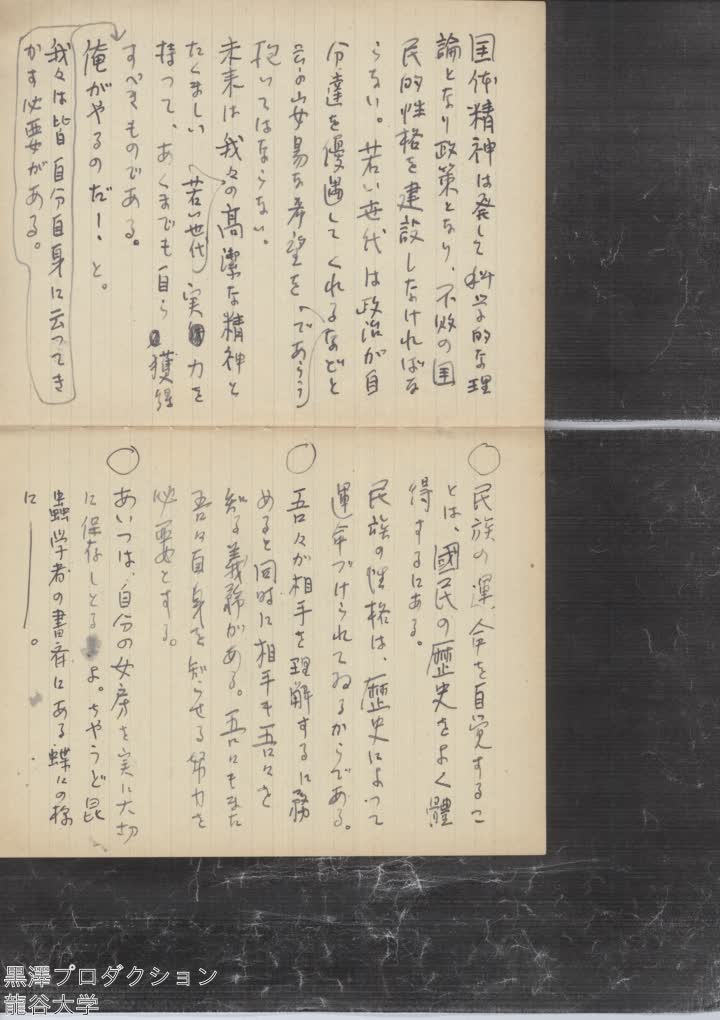 国体精神は発して科学的な理
論となり政策となり、不敗の国
民的性格を建設しなければな
らない。若い世代は政治が自
分達を優遇してくれるなどと
云ふ安易な希望を(であらう)
抱いてはならない。
未来は我々の高潔な精神と
たくましい(若い世代)実力を
持つて、あくまでも自ら獲得
すべきものである。
俺がやるのだ!、と。
我々は皆自分自身に云つてき
かす必要がある。
○ 民族の運命を自覚するこ
とは、國民の歴史をよく體
得するにある。
民族の性格は、歴史によつて
運命づけられてゐるからである。
○ 吾々が相手を理解するに務
めると同時に相手も吾々を
知る義務がある。吾々もまた
吾々自身を知らせる努力を
必要とする。
○ あいつは、自分の女房を実に大切
に保存しとるよ。ちやうど昆
蟲学者の書斎にある蝶々の様
に――。
黒澤プロダクション
龍谷大学